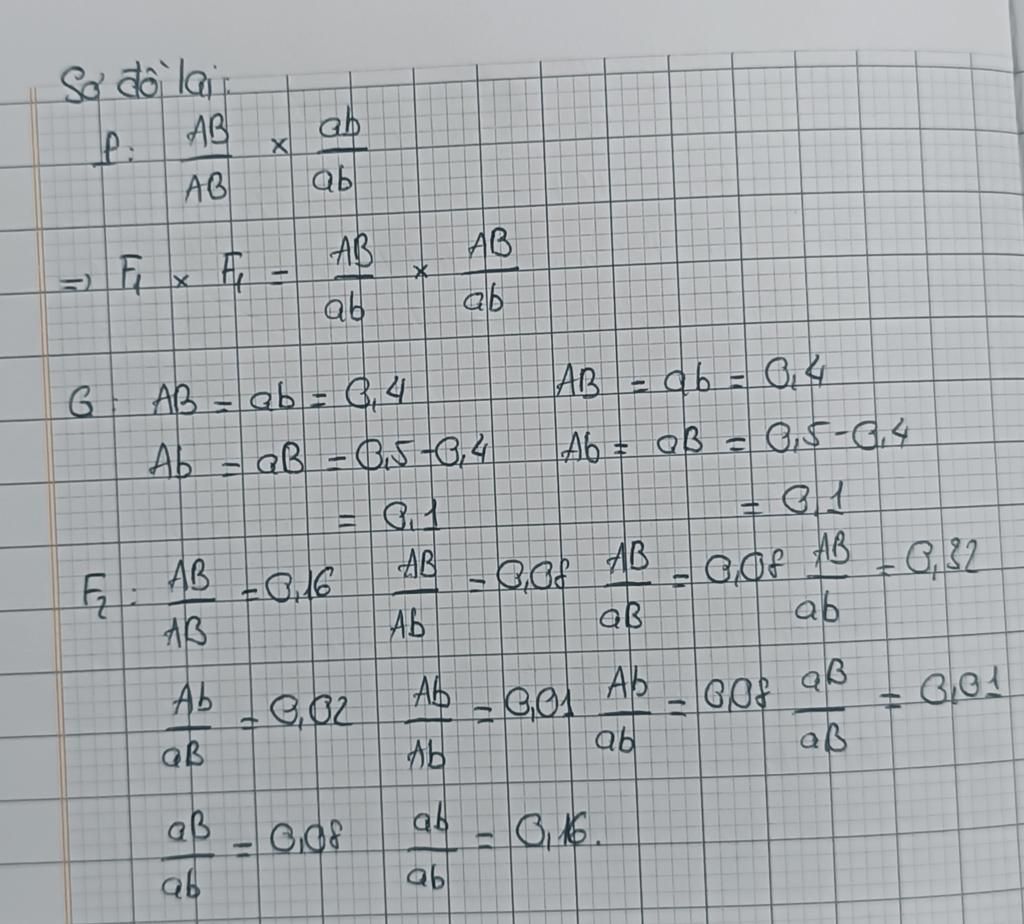 Sơ đồ lai:
P: AB/AB × ab/ab
=> F₁ × F₁ = AB/ab × AB/ab
G: AB = ab = 0,4 AB = ab = 0,4
Ab = aB = 0,5-0,4 Ab = aB = 0,5-0,4
= 0,1 = 0,1
F₂: AB/AB = 0,16 AB/Ab = 0,08 AB/aB = 0,08 AB/ab = 0,32
Ab/aB = 0,02 Ab/Ab = 0,01 Ab/ab = 0,08 aB/aB = 0,01
aB/ab = 0,08 ab/ab = 0,16.